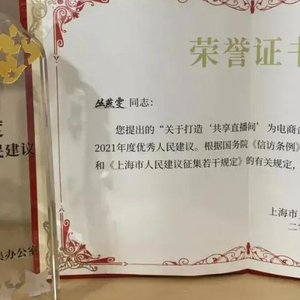 荣誉证书
丛燕雯 同志：
您提出的“关于打造‘共享直播间’为电商
2021年度优秀人民建议。根据国务院《信访条例》
和《上海市人民建议征集若干规定》的有关规定，
上海市
民建议
办公室